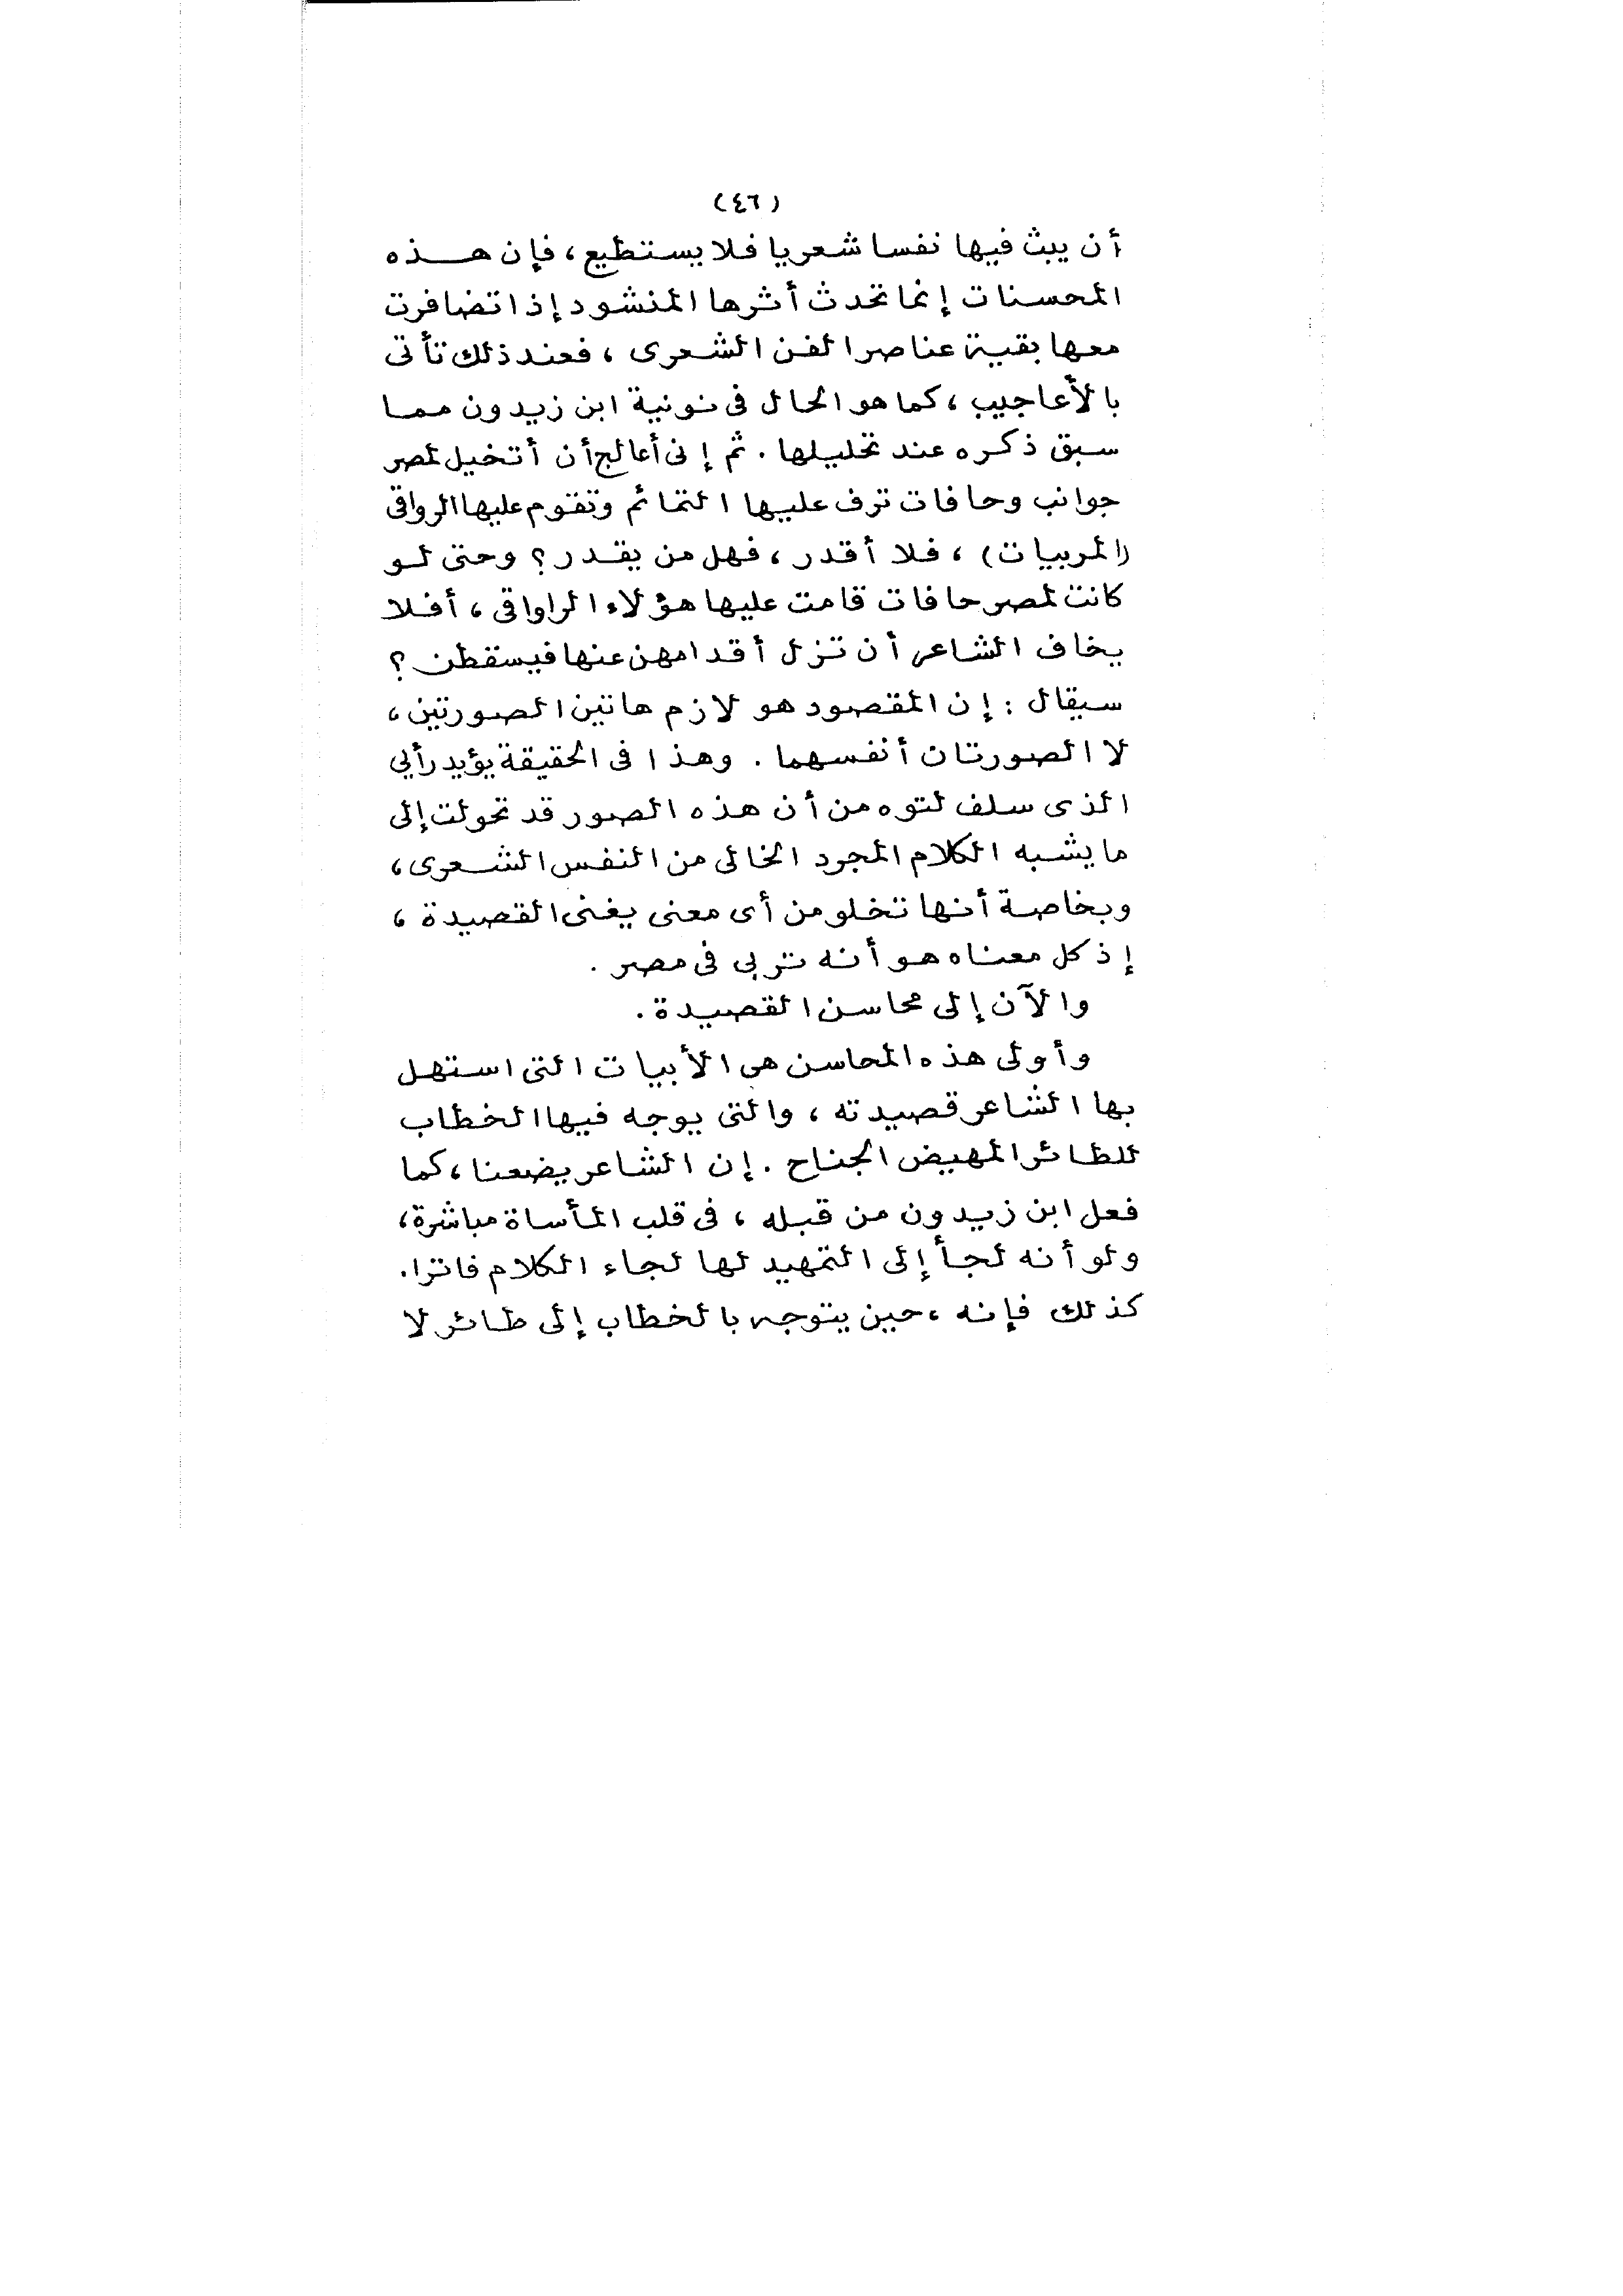 (٤٦)
أن يبث فيها نفسا شعريا فلا يستطيع، فإن هـــذه
المحسنات إنما تحدث أثرها المنشود إذا تضافرت
معها بقية عناصر الفن الشعرى، فعند ذلك تأتى
بالأعاجيب، كما هو الحال فى نونية ابن زيدون ممـا
سبق ذكره عند تحليلها. ثم إنى أعالج أن أتخيل لمصر
جوانب وحافات ترف عليها التمائم وتقوم عليها الرواقى
(المربيات)، فلا أقدر، فهل من يقدر؟ وحتى لـو
كانت لمصر حافات قامت عليها هؤلاء الراواقى، أفـلا
يخاف الشاعر أن تزل أقدامهن عنها فيسقطن؟
سيقال: إن المقصود هو لازم هاتين الصورتين،
لا الصورتان أنفسهما. وهذا فى الحقيقة يؤيد رأيى
الذى سلف لتوه من أن هذه الصور قد تحولت إلى
ما يشبه الكلام المجرد الخالى من النفس الشعرى،
وبخاصة أنها تخلو من أى معنى يغنى القصيدة،
إذ كل معناه هو أنه تربى فى مصر.
والآن إلى محاسن القصيدة.
وأولى هذه المحاسن هى الأبيات التى استهل
بها الشاعر قصيدته، والتى يوجه فيها الخطاب
للطائر المهيض الجناح. إن الشاعر يضعنا، كما
فعل ابن زيدون من قبله، فى قلب المأساة مباشرة،
ولو أنه لجأ إلى التمهيد لها لجاء الكلام فاترا.
كذلك فإنه، حين يتوجه بالخطاب إلى طائر لا